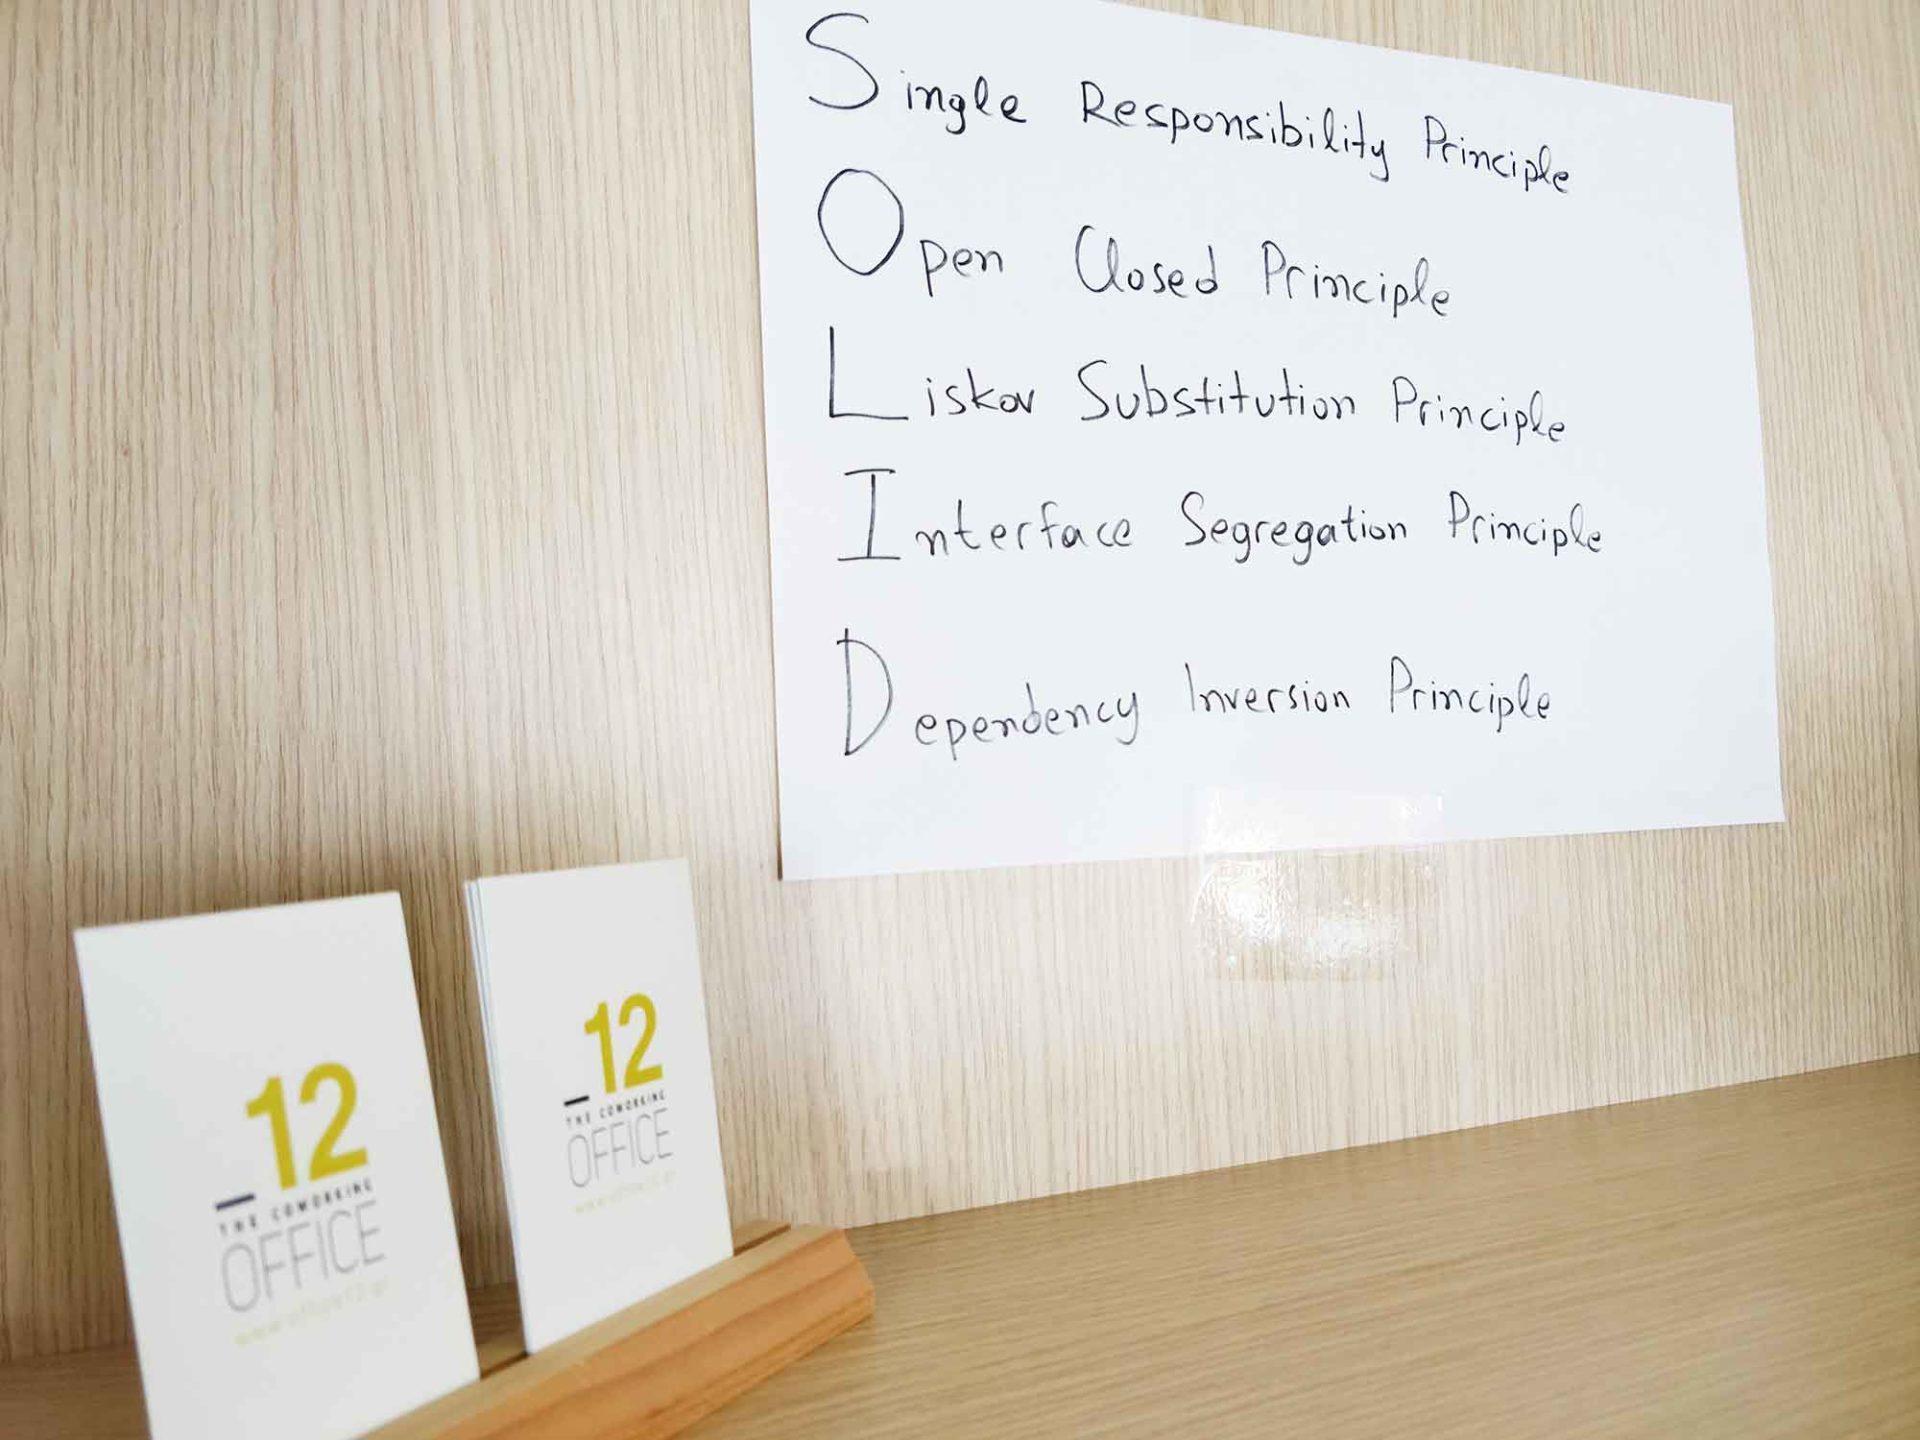 Single Responsibility Principle
Open Closed Principle
Liskov Substitution Principle
Interface Segregation Principle
Dependency Inversion Principle
12
THE COWORKING
OFFICE
www.office12.gr
12
THE COWORKING
OFFICE